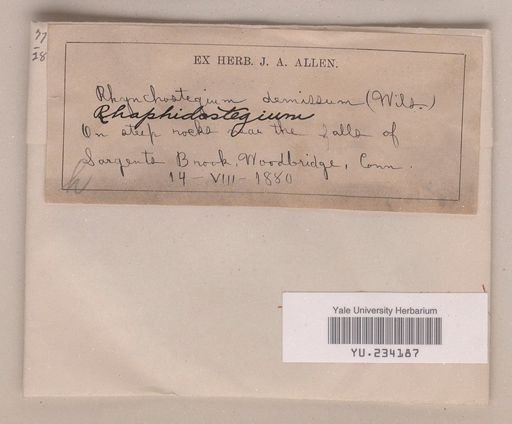 EX HERB. J. A. ALLEN.
Rhynchostegium demissum (Wils.)
Rhaphidostegium
On steep rocks near the falls of
Sargents Brook, Woodbridge, Conn.
14 - VIII - 1880
Yale University Herbarium
YU.234187